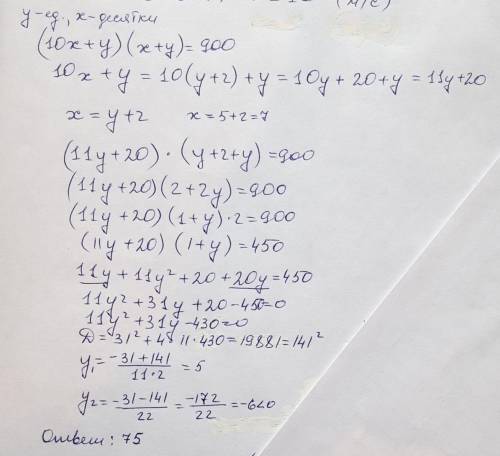 y-ед., x-десятки
(10x+y)(x+y)=900
10x+y=10(y+2)+y=10y+20+y=11y+20
x=y+2 x=5+2=7
(11y+20)·(y+2+y)=900
(11y+20)(2+2y)=900
(11y+20)(1+y)·2=900
(11y+20)(1+y)=450
11y+11y²+20+20y=450
11y²+31y+20-450=0
11y²+31y-430=0
D=31²+4·11·430=19881=141²
y₁=(-31+141)/(11·2)=5
y₂=(-31-141)/22=(-172)/22=-6<0
Ответ: 75